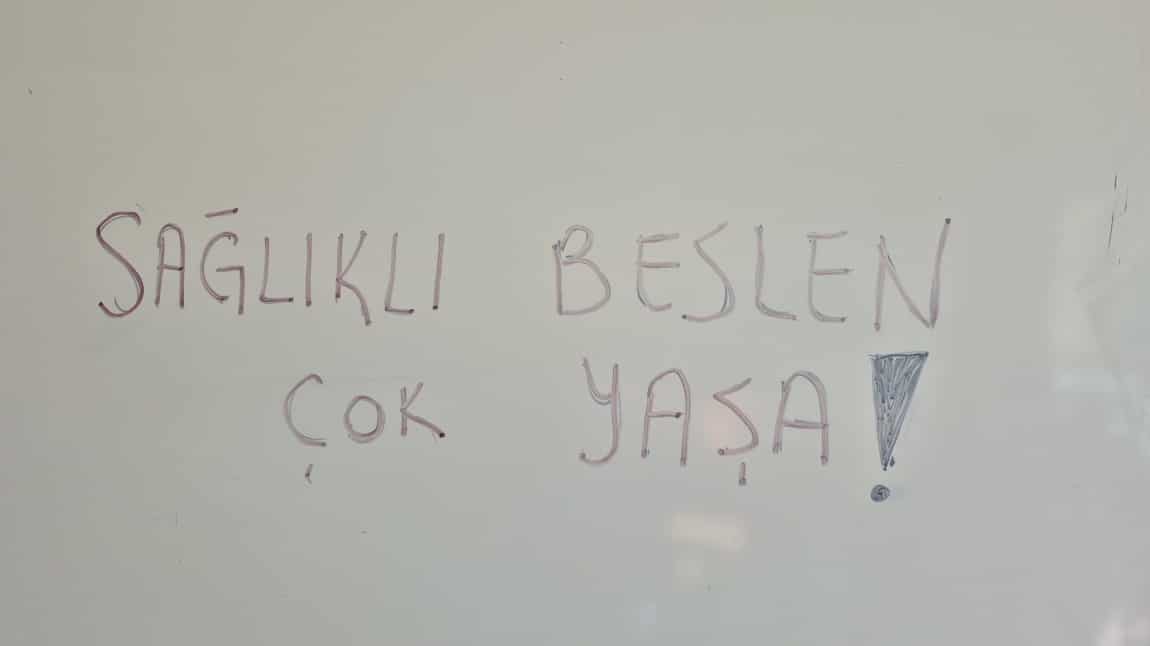 SAĞLIKLI BESLEN
ÇOK YAŞA!